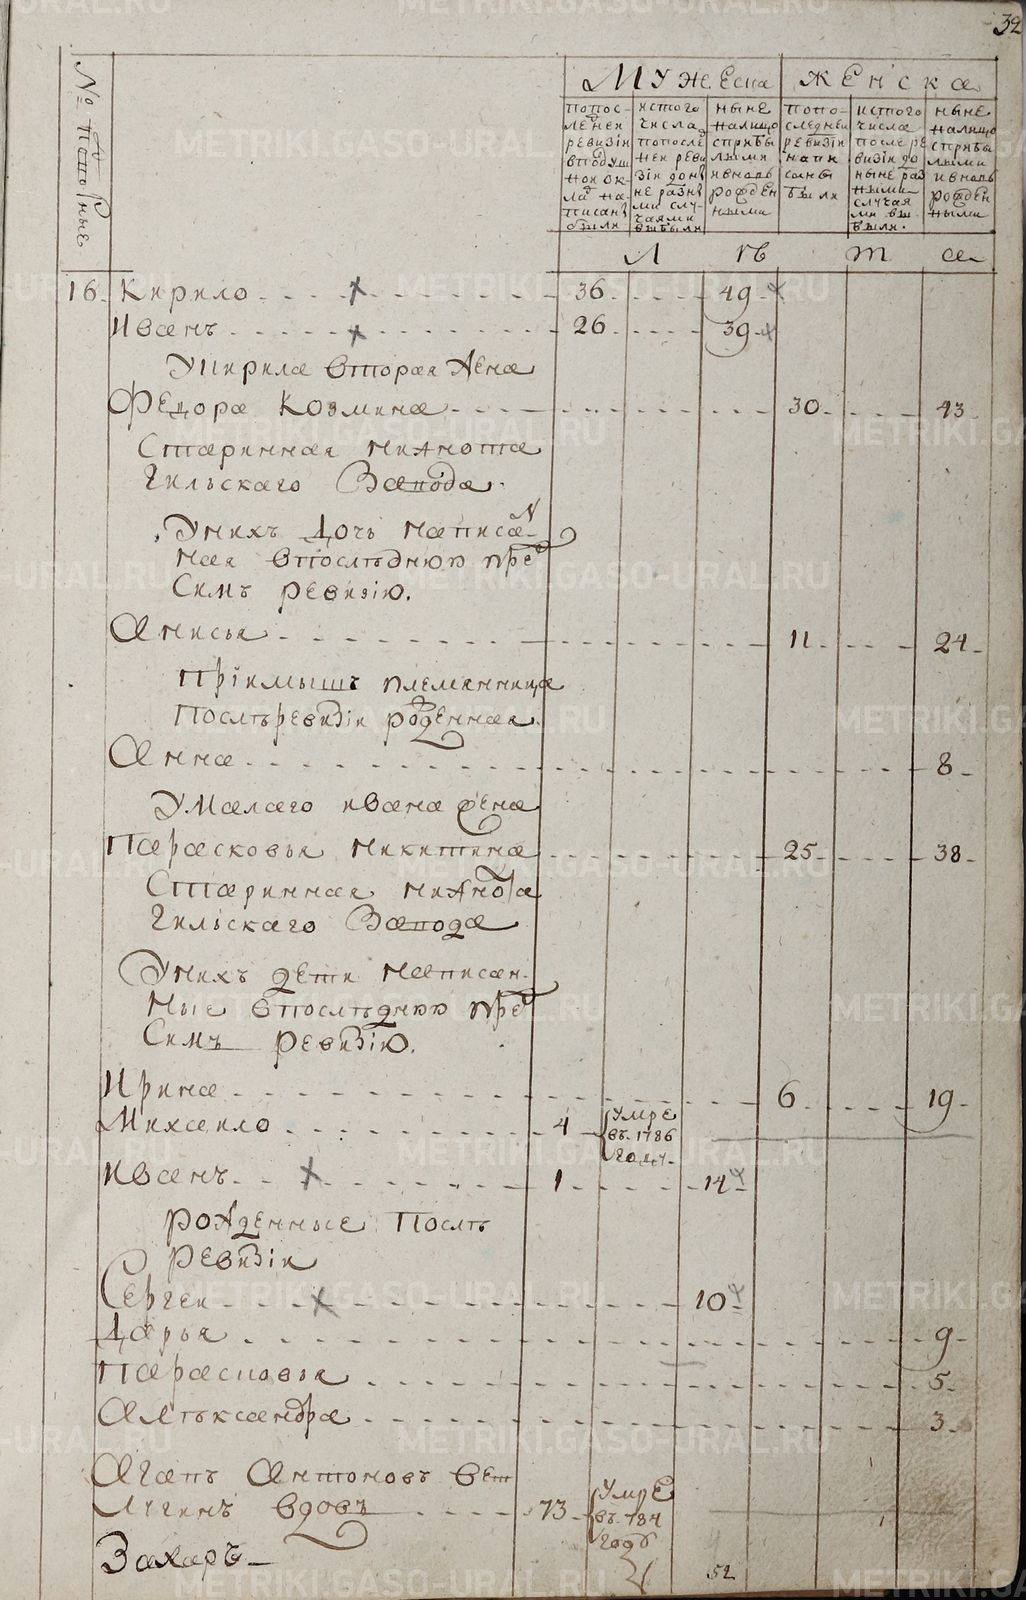 32
№ попорядку
Мужеска Женска
попос-
ленеи
ревизiи
вподуш
нои ок-
ла на-
писаны
были
истого
числа
попосле
неи реви
зiи доны
не разны
ми слу-
чаями
выбыли
ныне
налицо
сприбы
лыми
ивновь
рожден
ными
попо-
следнеи
ревизiи
напи
саны
были
истого
числа
после ре
визiи до
ныне раз
ными
случая
ми вы
были.
ныне
налицо
сприбы
лыми
ивновь
рожден
ными
Л ѣ т а
16 Кирило 36 49
Иванъ 26 39
Укирила вторая жена
Федора Козмина 30 43
Старинная нижнота
гильскаго Завода
Унихъ дочь написа
ная впослѣднюю пред
симъ ревизiю.
Анисья 11 24
Прiимышъ племянница
Послѣревизiи рожденная
Анна 8
Умалаго ивана жена
Парасковья никитина 25 38
Старинная нижнота
гильскаго Завода
Унихъ дети написан-
ные впослѣднюю пред
симъ ревизiю.
Ирина 6 19
Михаило 4 умре
въ 1786
году
Иванъ 1 14
рожденные послѣ
ревизiи
Сергеи 10
Дарья 9
Парасковья 5
Алѣксандра 3
Агапъ Антоновъ Вет
лугинъ вдовъ 73 умре
въ 784
году
Захаръ
52
METRIKI.GASO-URAL.RU